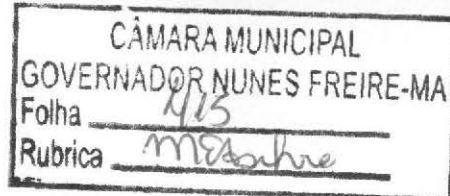 CÂMARA MUNICIPAL
GOVERNADOR NUNES FREIRE-MA
Folha
Rubrica